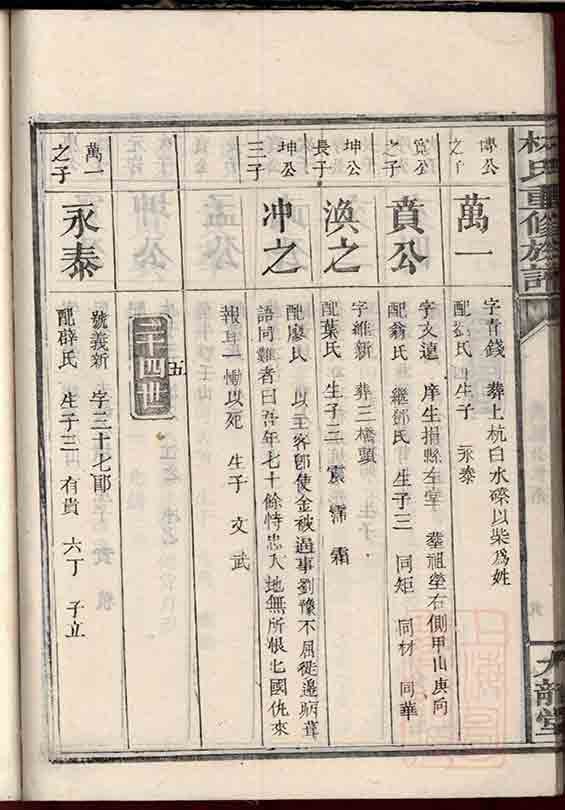 林氏重修族譜
九龍堂
博公之子
萬一
字青錢 葬上杭白水磜以柴為姓
配 氏 生子 永泰
寬公之子
賁公
字文遠 庠生捐縣左堂 葬祖塋右側甲山庚向
配翁氏 繼鄧氏 生子三 同矩 同材 同華
坤公長子
渙之
字維新 葬三橋頭
配葉氏 生子三 震 霈 霜
坤公三子
冲之
配廖氏 以主客郎使金被過事劉豫不屈徙邊病葺
語同難者曰吾年七十餘恃忠入地無所恨七國仇來
報耳一慟以死 生子 文 武
二十四世
五
萬一之子
永泰
號義新 字三十七郎
配薛氏 生子三 有貴 六丁 子立